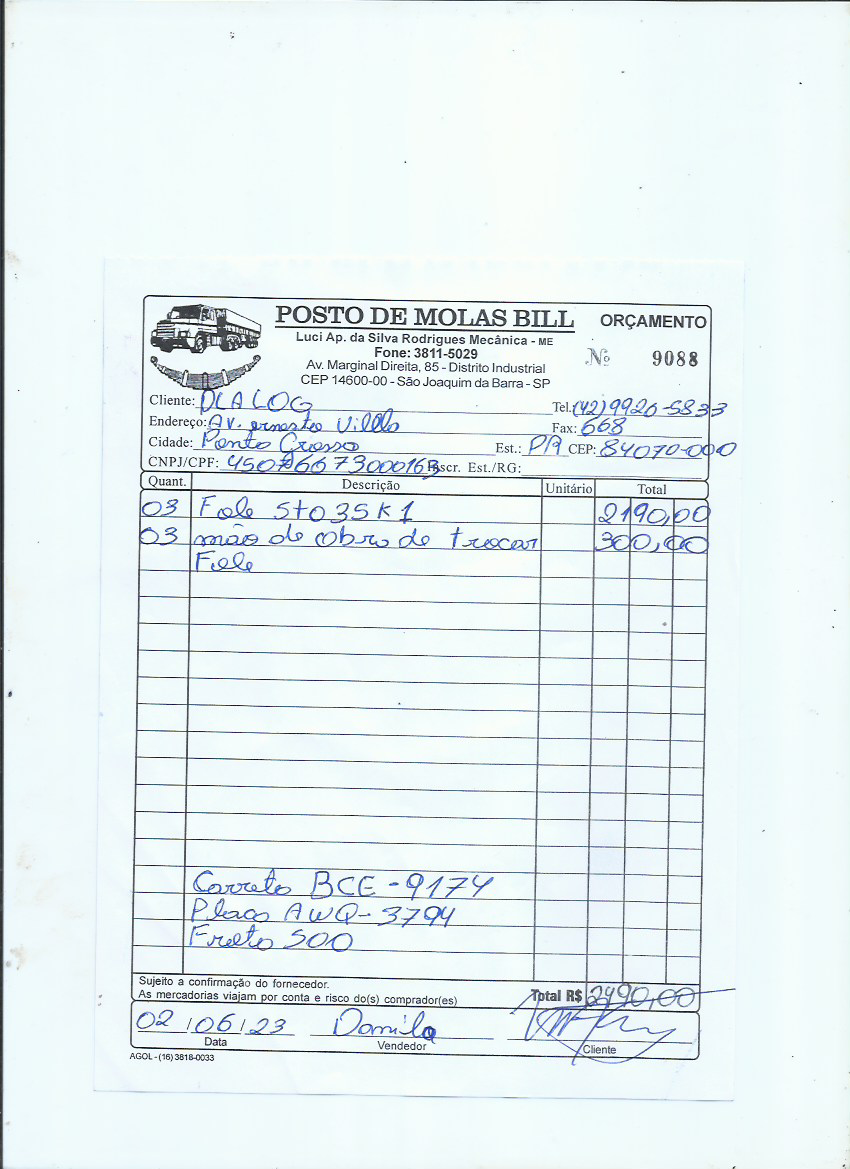 POSTO DE MOLAS BILL
ORÇAMENTO
Luci Ap. da Silva Rodrigues Mecânica - ME
Fone: 3811-5029
Nº 9088
Av. Marginal Direita, 85 - Distrito Industrial
CEP 14600-00 - São Joaquim da Barra - SP
Cliente: DLALOG Tel. (42)9920-5833
Endereço: Av. ernesto Vilela Fax: 668
Cidade: Ponta Grossa Est.: PR CEP: 84070-000
CNPJ/CPF: Inscr. Est./RG:
Quant. Descrição Unitário Total
03 Fole St035K1 2190,00
03 mão de obra de trocar 300,00
Fole
Carreta BCE-9174
Placa AWQ-3794
Freto 500
Sujeito a confirmação do fornecedor.
As mercadorias viajam por conta e risco do(s) comprador(es) Total R$ 2490,00
02 / 06 / 23 Danilo
Data Vendedor Cliente
AGOL - (16) 3818-0033